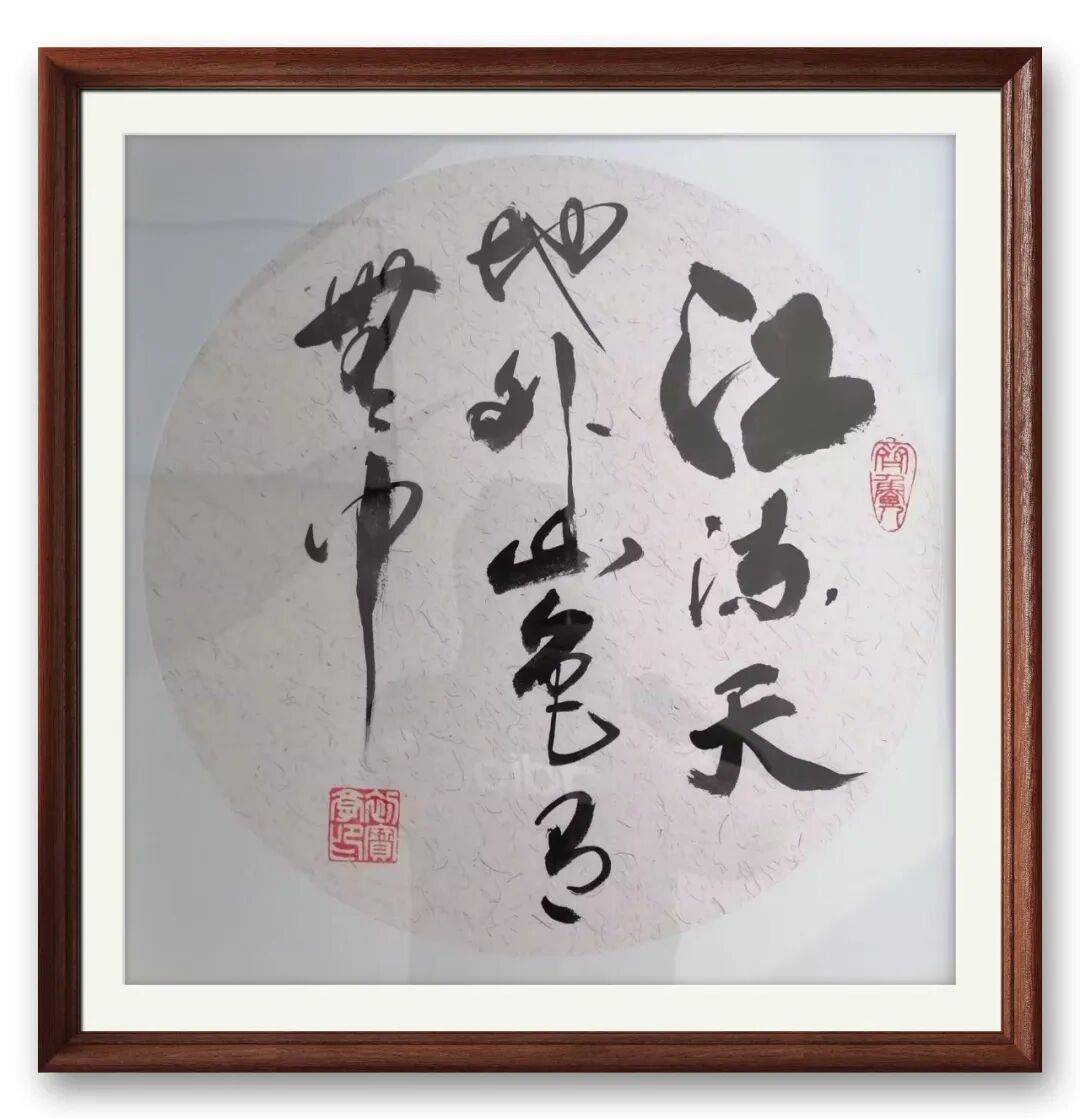 江流天
地外山色有
無中